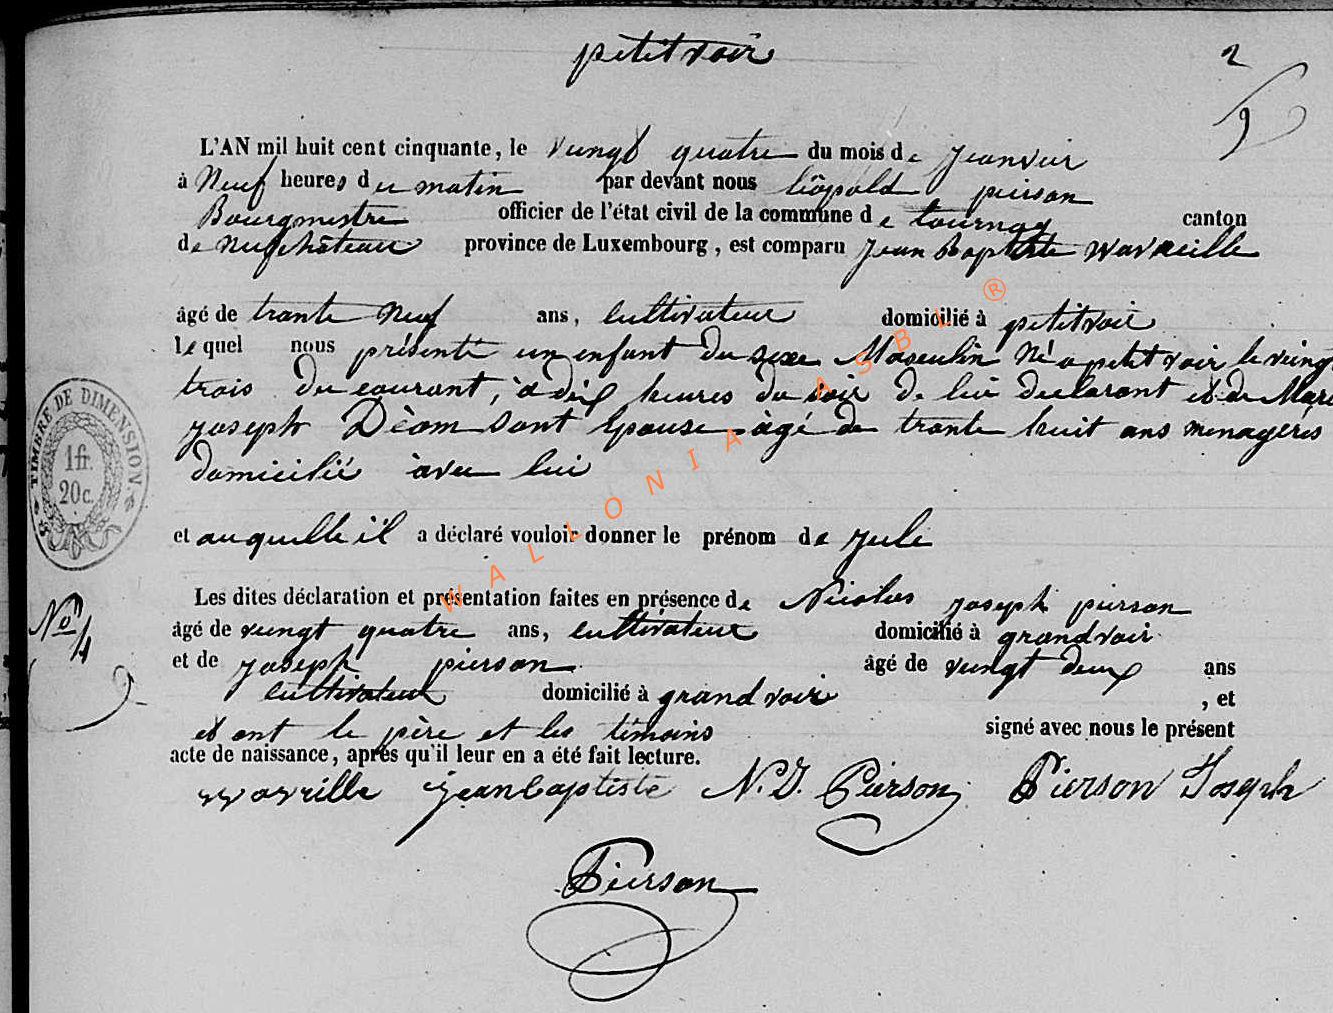 petitvoir
2
L'AN mil huit cent cinquante, le vungt quatre du mois de Jeanvier
à Neuf heures du matin par devant nous léopold pierson
Bourgmestre officier de l'état civil de la commune de tournay canton
de Neufchâteau province de Luxembourg, est comparu Jean Baptiste Wavreille
âgé de trante Neuf ans, Cultivateur domicilié à petitvoir
lequel nous présenté un enfant du sexe Masculin Né a petitvoir le vingt
trois du courant, à dix heures du soir de lui declarant et de Marie
joseph Dèom sont Epouse àgé de trante huit ans menageres
domicilié àvec lui
et auquelle il a déclaré vouloir donner le prénom de Jule
Les dites déclaration et présentation faites en présence de Nicolas joseph pierson
âgé de vungt quatre ans, cultivateur domicilié à grandvoir
et de joseph pierson âgé de vungt deux ans
cultivateur domicilié à grandvoir , et
et ont le père et les témoins signé avec nous le présent
acte de naissance, après qu'il leur en a été fait lecture.
Wavreille jeanbaptiste N. J. Pierson Pierson Joseph
Pierson
TIMBRE DE DIMENSION.
1 fr.
20 c.
No 4
WALLONIA ASBL ®